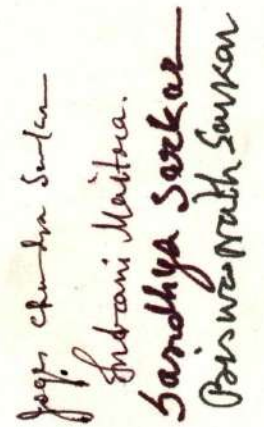 Jogesh Chandra Sarkar
Indrani Maitra.
Sandhya Sarkar
Biswanath Sarkar